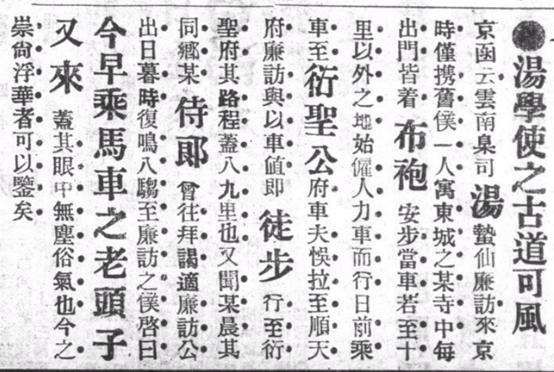 ●湯學使之古道可風
京函云雲南臬司湯蟄仙廉訪來京
時僅携舊僕一人寓東城之某寺中每
出門皆着布袍安步當車若至十
里以外之地始僱人力車而行日前乘
車至衍聖公府車夫悞拉至順天
府廉訪與以車値卽徒步行至衍
聖府其路程蓋八九里也又聞某晨其
同鄕某侍郞曾往拜謁適廉訪公
出日暮時復鳴八騶至廉訪之僕啓曰
今早乘馬車之老頭子
又來蓋其眼中無塵俗氣也今之
崇尙浮華者可以鑒矣